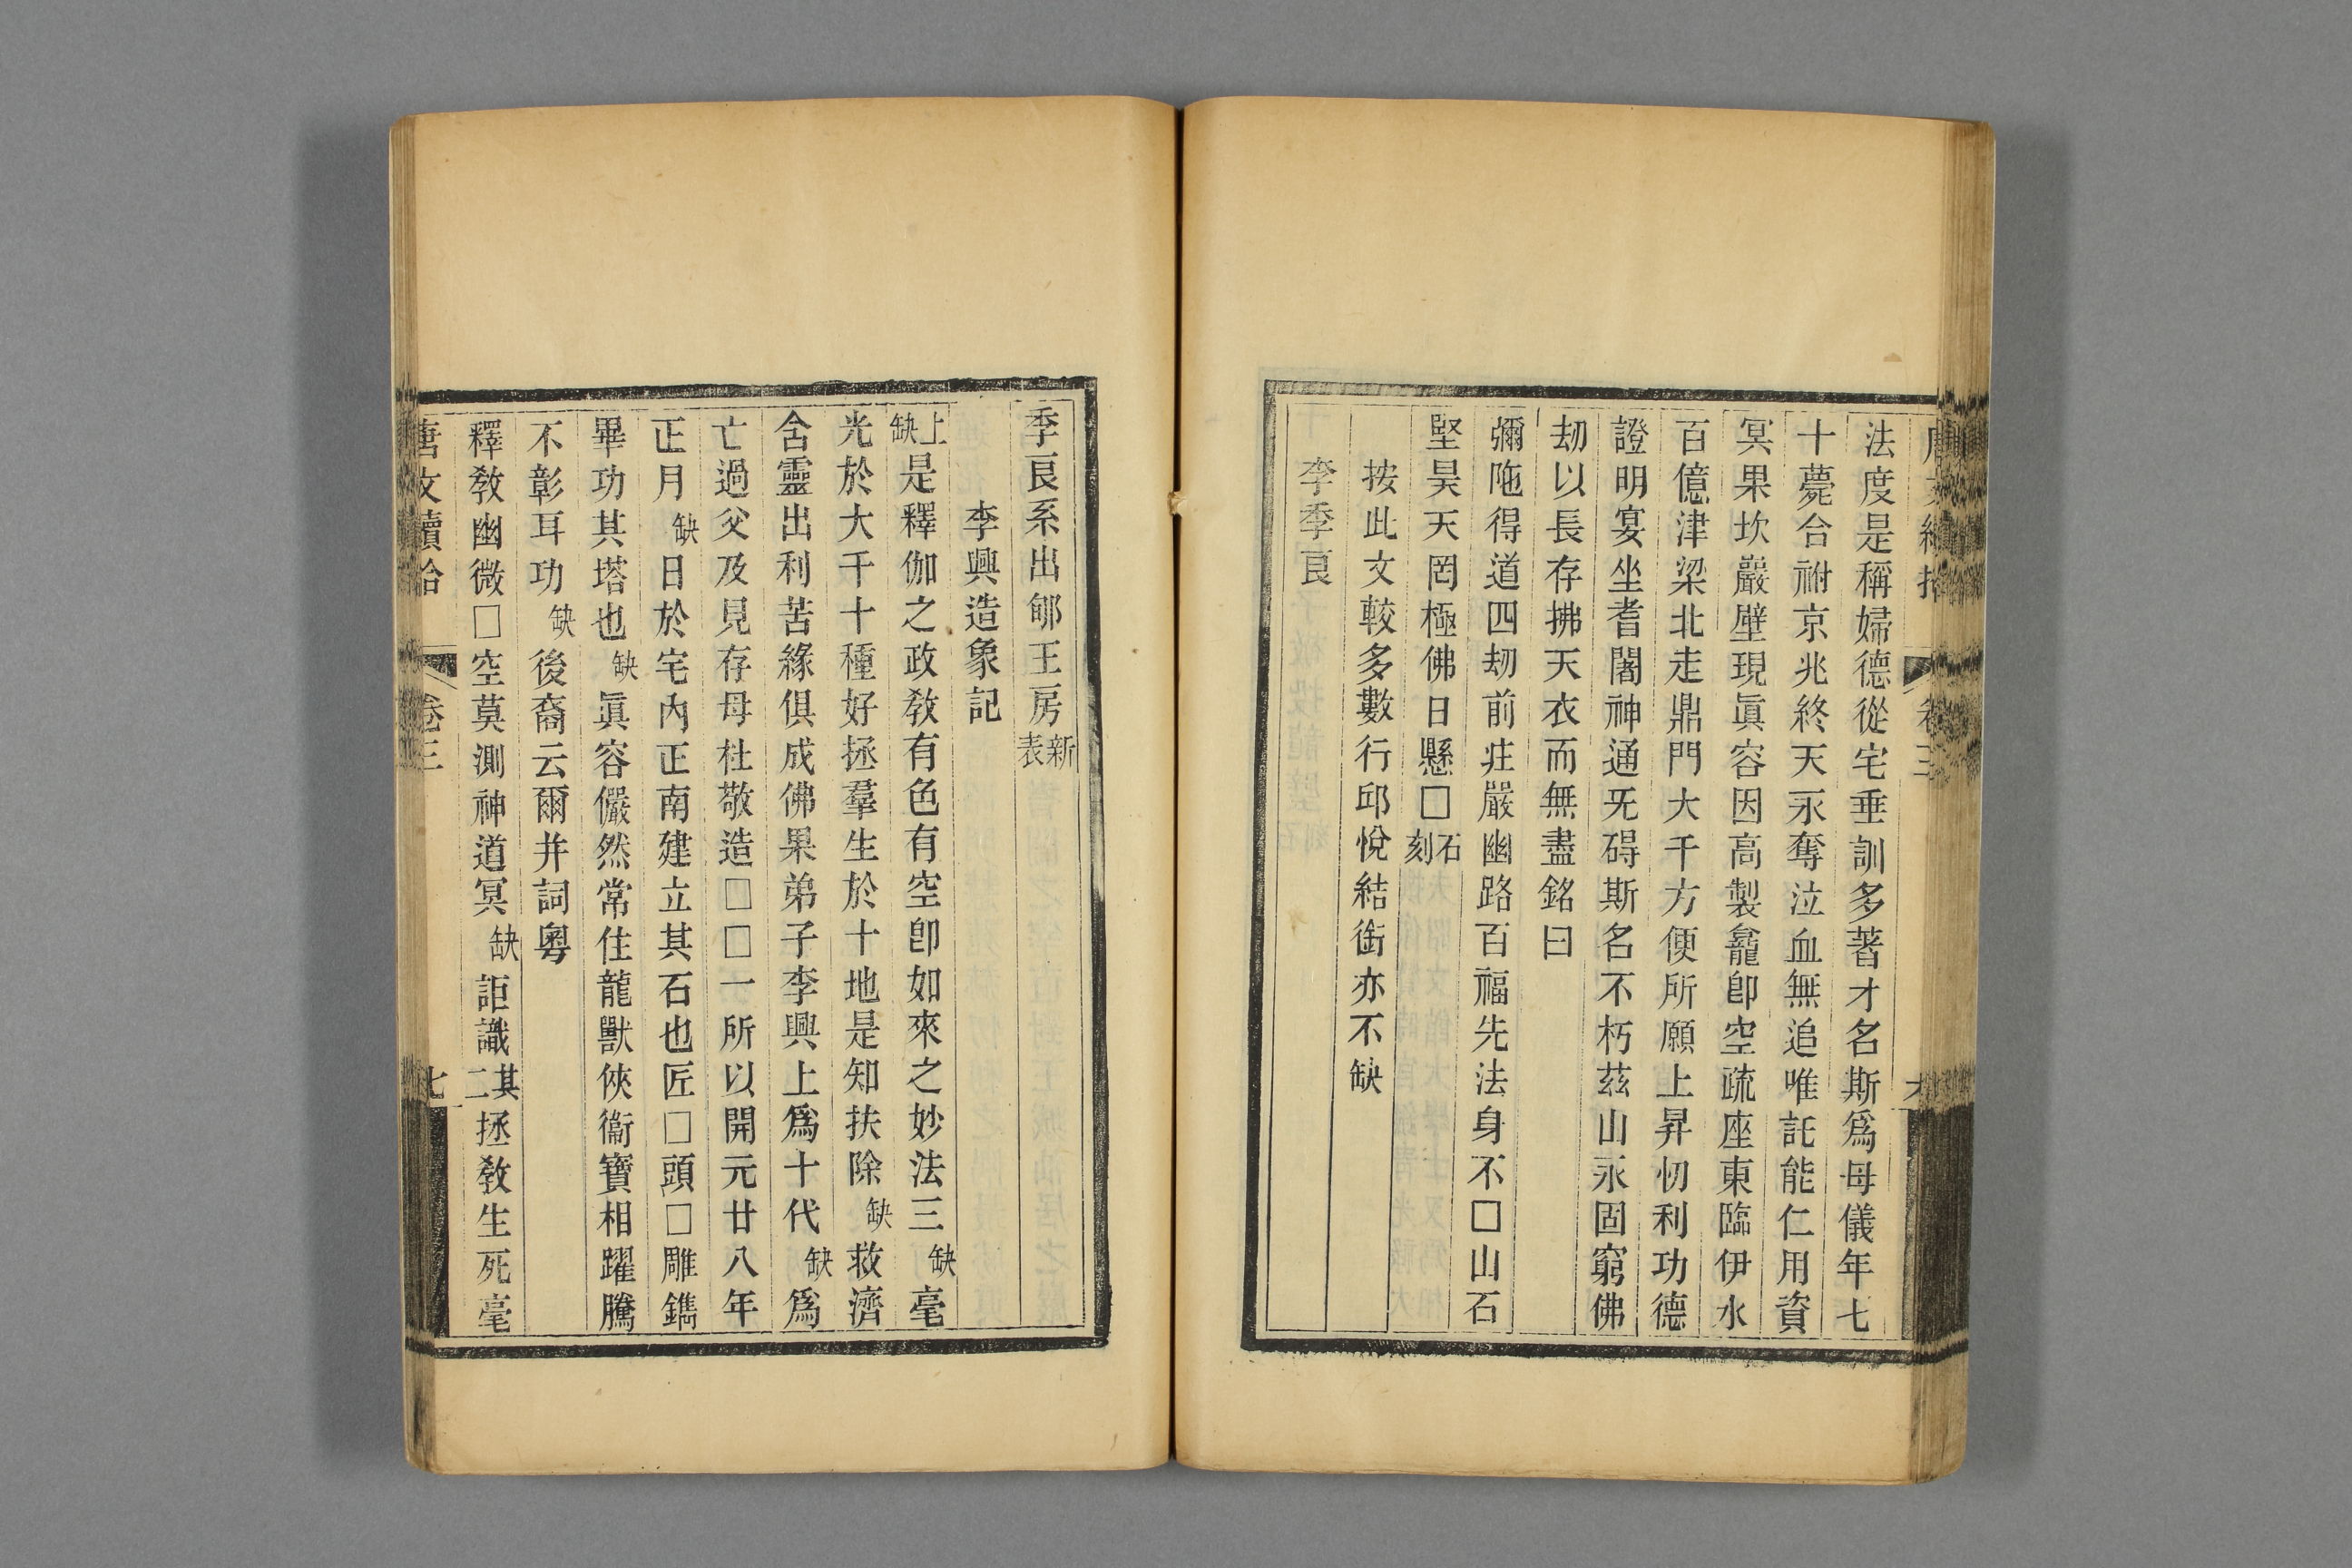 法度是稱婦德從宅垂訓多著才名斯爲母儀年七
十薨合祔京兆終天永奪泣血無追唯託能仁用資
冥果坎巖壁現眞容因高製龕卽空疏座東臨伊水
百億津梁北走鼎門大千方便所願上昇忉利功德
證明宴坐耆闍神通旡碍斯名不朽茲山永固窮佛
劫以長存拂天衣而無盡銘曰
彌陁得道四劫前莊嚴幽路百福先法身不□山石
堅昊天罔極佛日懸□石刻
按此文較多數行邱悅結銜亦不缺
李季良
唐文續拾 卷三 六
季良系出郇王房新表
李興造象記
上缺是釋伽之政敎有色有空卽如來之妙法三缺毫
光於大千十種好拯羣生於十地是知扶除缺救濟
含靈出利苦緣俱成佛果弟子李興上爲十代缺爲
亡過父及見存母杜敬造□□一所以開元廿八年
正月缺日於宅內正南建立其石也匠□頭□雕鐫
畢功其塔也缺眞容儼然常住龍獸俠衞寶相躍騰
不彰耳功缺後裔云爾幷詞粵
釋敎幽微□空莫測神道冥缺詎識其二拯敎生死毫
唐文續拾 卷三 七